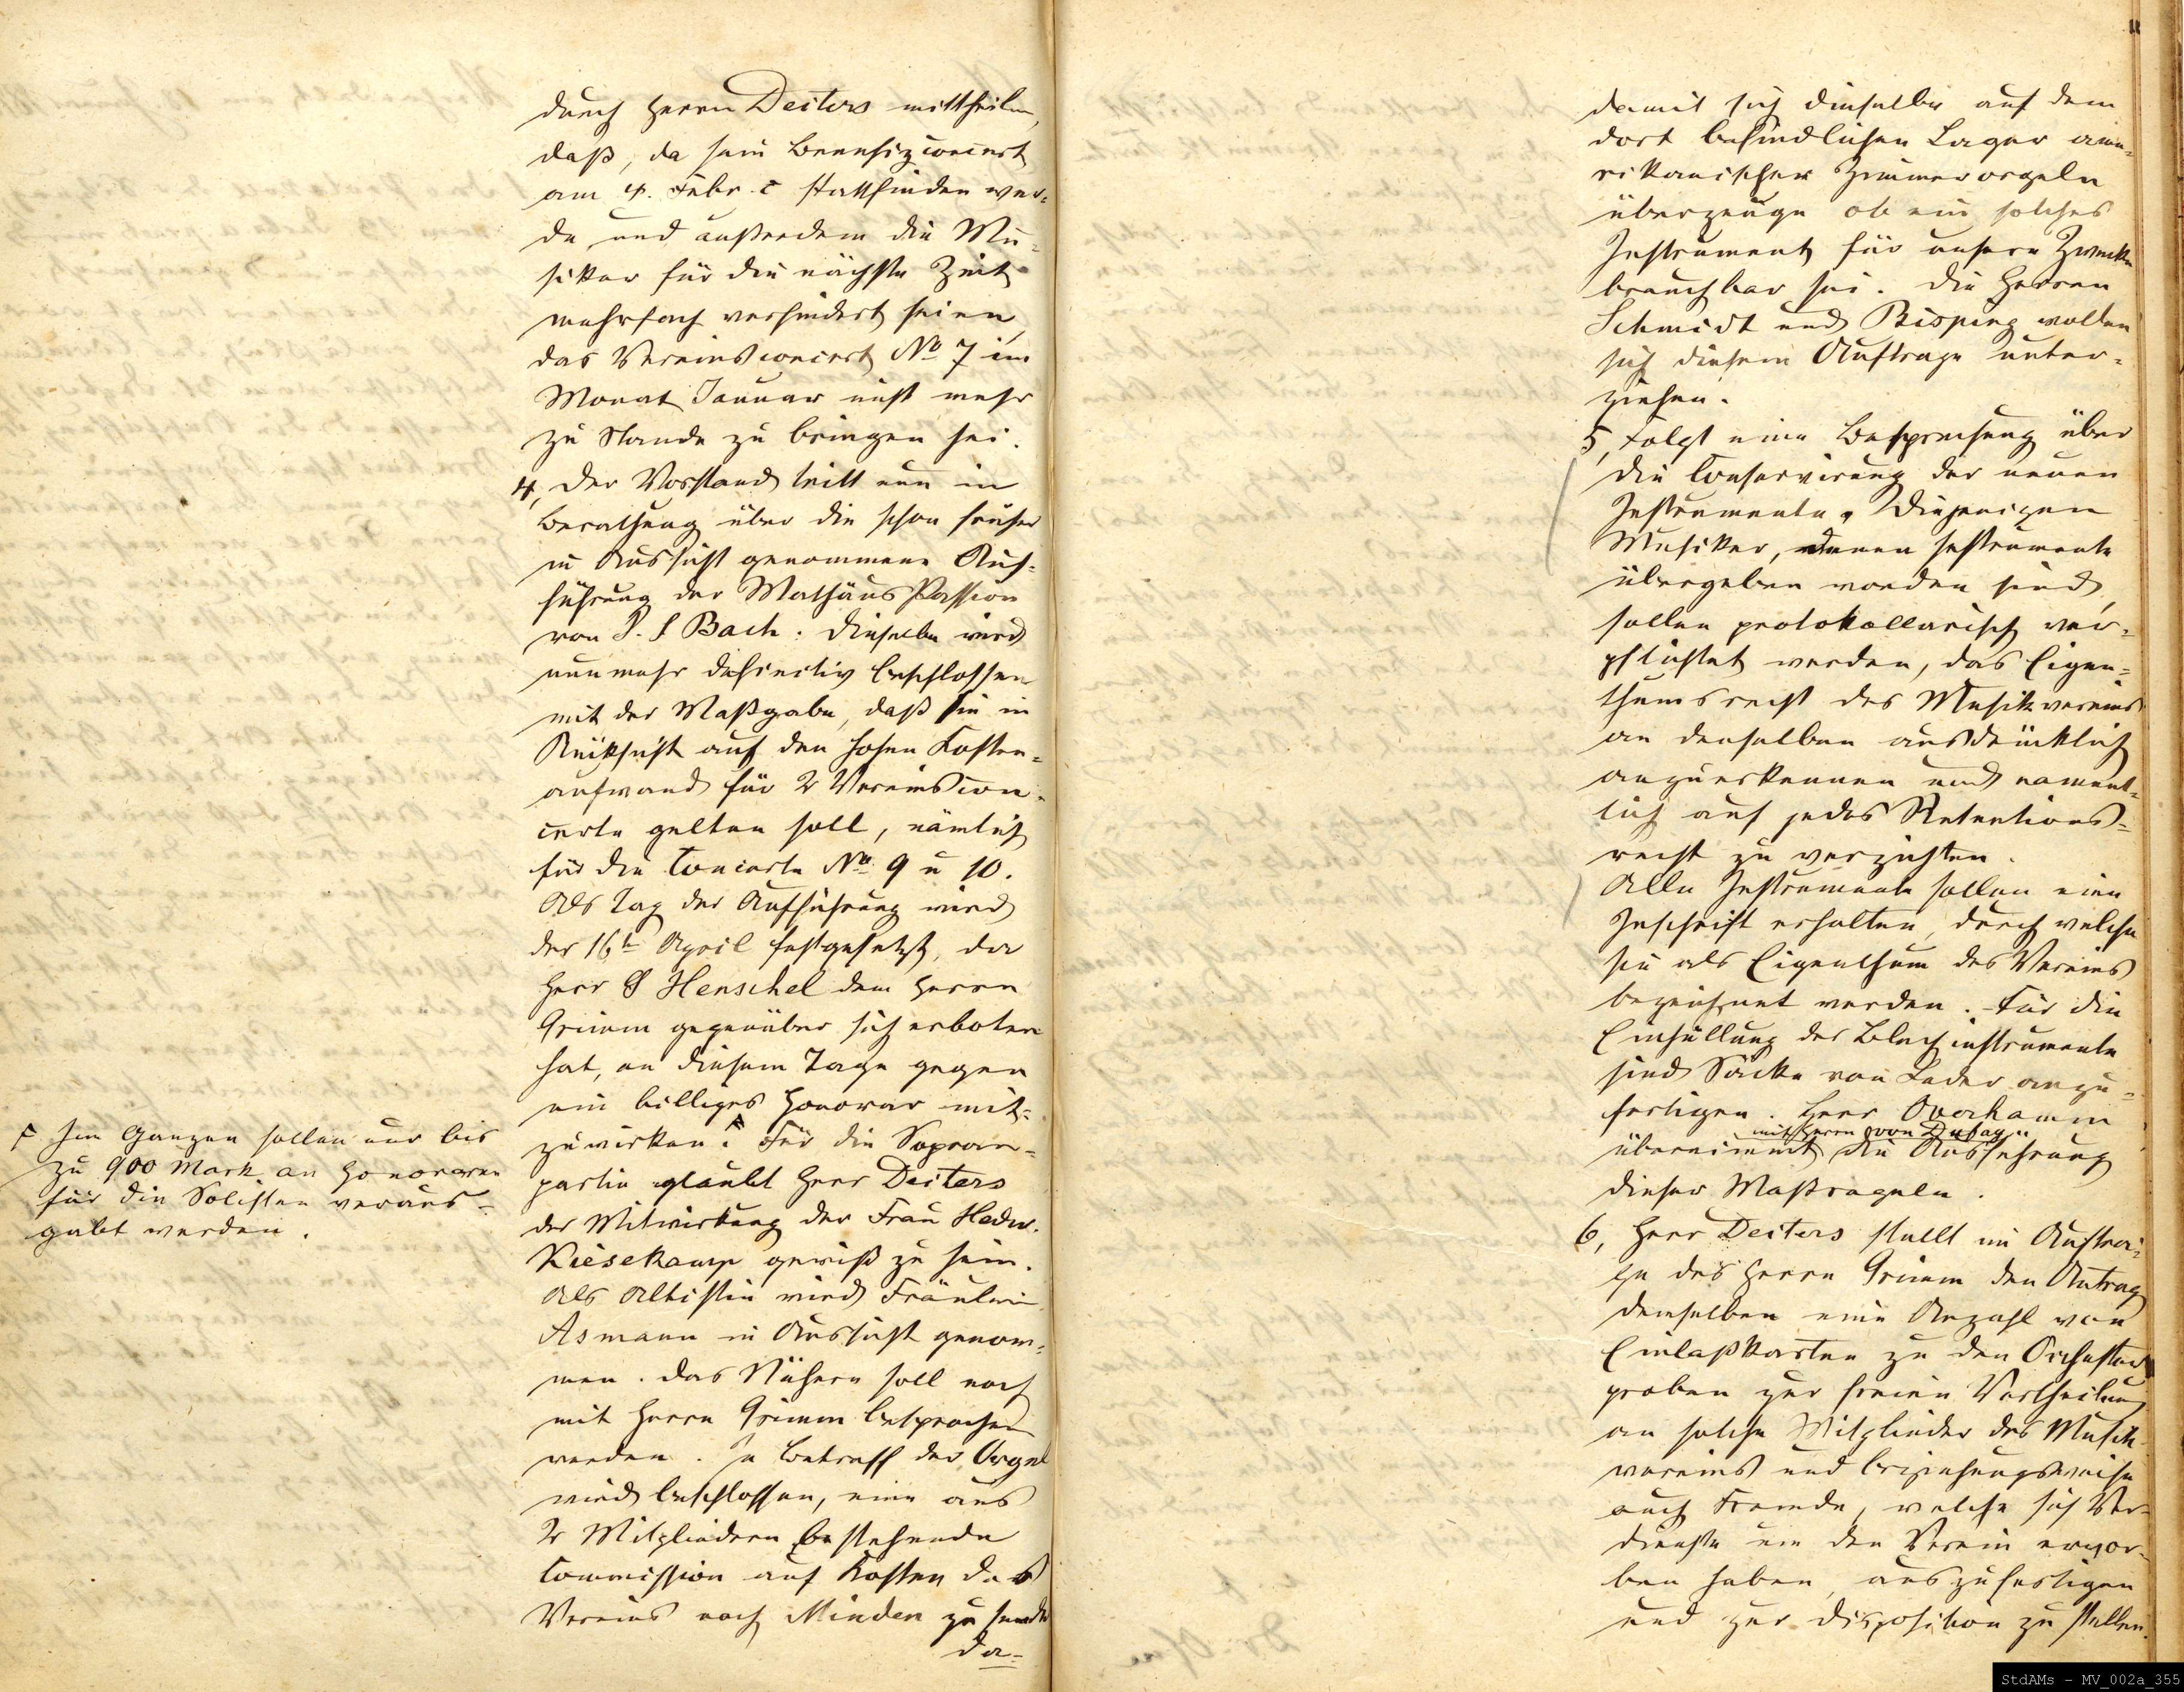 durch Herrn Deiters mittheilen,
daß, da sein Benefizconcert
am 4. Febr. c stattfinden wer-
de und außerdem die Mu-
siker für die nächste Zeit
mehrfach verhindert seien,
das Vereinsconcert No 7 im
Monat Januar nicht mehr
zu Stande zu bringen sei.
4, Der Vorstand tritt nun in
Berathung über die schon früher
in Aussicht genommene Auf-
führung der Mathäus Passion
von J. S Bach. Dieselbe wird
nunmehr definitiv beschlossen
mit der Maßgabe, daß sie in
Rücksicht auf den hohen Kosten-
aufwand für 2 Vereinscon-
certe gelten soll, nämlich
für die Concerte No 9 u 10.
Als Tag der Aufführung wird
der 16t April festgesetzt, da
Herr G Henschel dem Herrn
Grimm gegenüber sich erboten
hat, an diesem Tage gegen
ein billiges Honorar mit-
zuwirken. Γ Für die Sopran-
partie glaubt Herr Deiters
der Mitwirkung der Frau Hedw.
Kiesekamp gewiß zu sein.
Als Altistin wird Fräulein
Asmann in Aussicht genom-
men. Das Nähere soll noch
mit Herrn Grimm besprochen
werden. In Betreff der Orgel
wird beschlossen, eine aus
2 Mitgliedern bestehende
Commission auf Kosten des
Vereins nach Minden zu senden
da-
Γ Im Ganzen sollen nur bis
zu 900 Mark an Honoraren
für die Solisten veraus-
gabt werden.
damit sich dieselbe auf dem
dort befindlichen Lager ame-
rikanischer Zimmerorgeln
überzeuge ob ein solches
Instrument für unsere Zwecke
brauchbar sei. Die Herren
Schmidt und Bisping wollen
sich diesem Auftrage unter-
ziehen.
5, Folgt eine Besprechung über
die Conservirung der neuen
Instrumente. Diejenigen
Musiker, denen Instrumente
übergeben worden sind,
sollen protokollarisch ver-
pflichtet werden, das Eigen-
thumsrecht des Musikvereins
an denselben ausdrücklich
anzuerkennen und nament-
lich auf jedes Retentions-
recht zu verzichten.
Alle Instrumente sollen eine
Inschrift erhalten, durch welche
sie als Eigenthum des Vereins
bezeichnet werden. Für die
Einhüllung der Blechinstrumente
sind Säcke von Leder anzu-
fertigen. Herr Overhamm
mit Herrn von
übernimmt die Ausführung
dieser Maßregeln.
6, Herr Deiters stellt im Auftra-
ge des Herrn Grimm den Antrag
demselben eine Anzahl von
Einlaßkarten zu den Orchester
proben zur freien Vertheilung
an solche Mitglieder des Musik-
vereins und beziehungsweise
auch Fremde, welche sich Ver-
dienste um den Verein erwor-
ben haben, auszufertigen
und zur Disposition zu stellen.
StdAMs - MV_002a_355